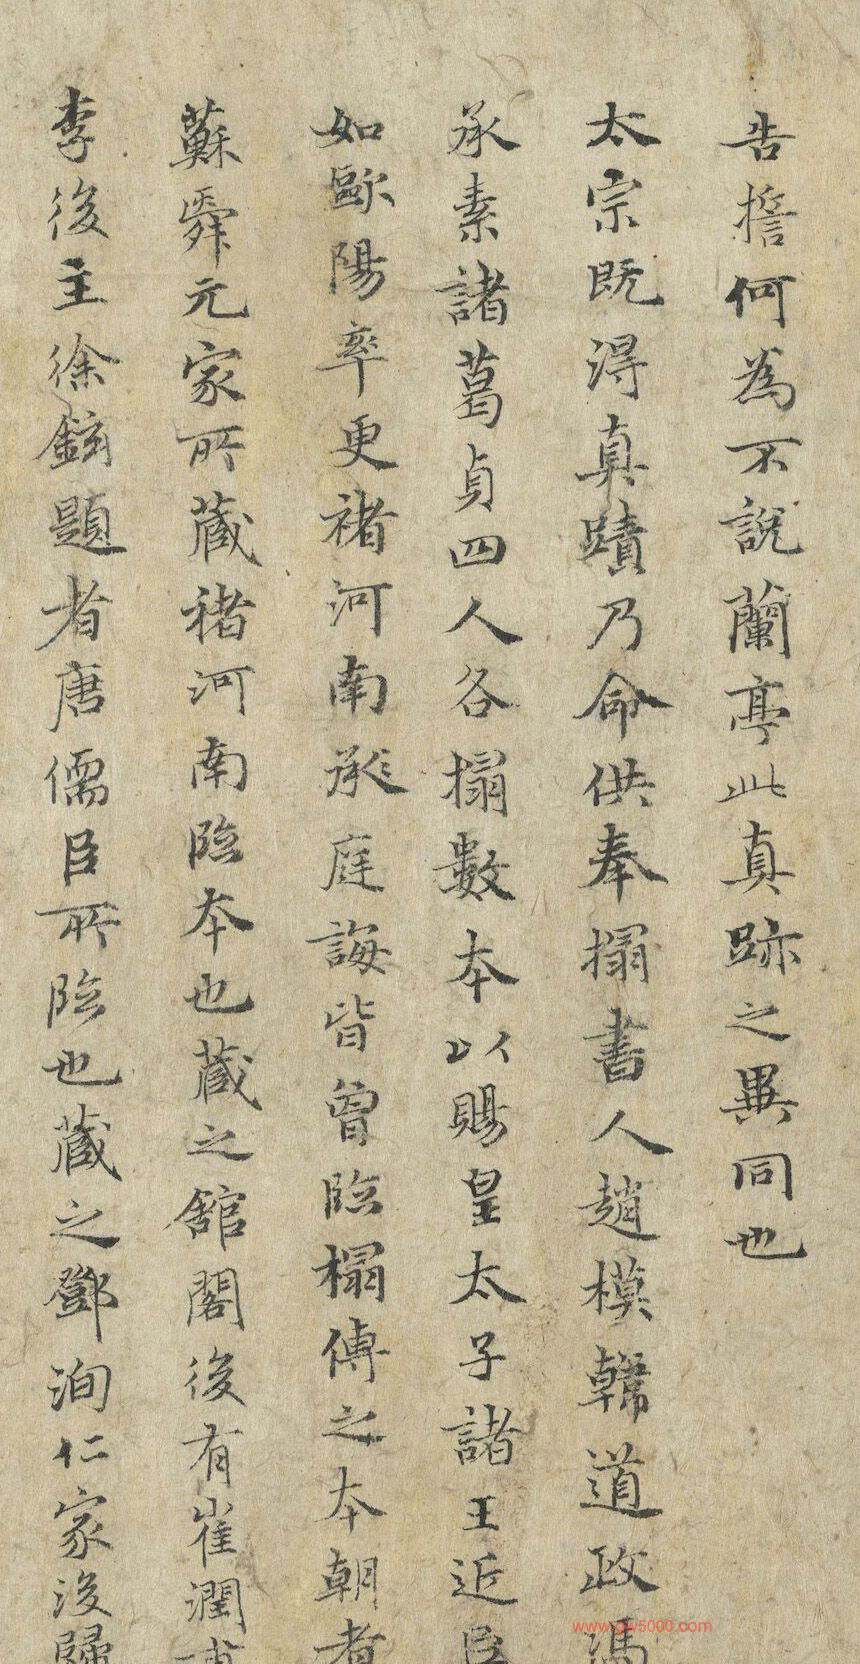 告擔何為不說蘭亭此真跡之異同也
太宗既得真蹟乃命供奉搨書人趙模韓道政馮
承素諸葛貞四人各搨數本以賜皇太子諸王近臣
如歐陽率更褚河南承庭誨皆曾臨榻傳之本朝者
蘇舜元家所藏褚河南臨本也藏之館閣後有崔潤甫
李後主徐鉉題者唐儒臣所臨也藏之鄧洵仁家後歸
www.gw5000.com